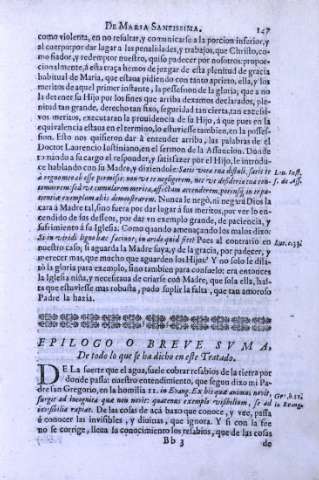 DE MARIA SANTISSIMA. 147
como violenta, en no resaltar, y comunicarse a la porcion inferior, y
al cuerpo por dar lugar a las penalidades, y trabajos, que Christo, co-
mo fiador, y redemptor nuestro, quiso padecer por nosotros: propor-
cionalmente, à esta traça hemos de juzgar de esta plenitud de gracia
habitual de Maria, que estaua pidiendo con tanto aprieto, ella, y los
meritos de aquel primer instante, la possession de la gloria, que a no
la detener su Hijo por los fines que arriba dexamos declarados, ple-
nitud tan grande, derecho tan fixo, seguridad tan cierta, tan
vos meritos, executaran la prouidencia de su Hijo, à que pues en la
equiualencia estaua en el termino, lo estuviesse tambien, en la posses-
sion. Esto nos quisieron dar à entender arriba, las palabras de el
Doctor Laurencio Iustiniano, en el sermon de la Assumpcion. Donde
tornando a su cargo el responder, y satisfazer por el Hijo, le introdu-
ce hablando con su Madre, y diziendole: Satis vitea sua distuli, satis te
à regno meo abesse permisi: non vt
Nunca le negò, ni negarà Dios la
cara à Madre tal, sino fuera por dar lugar à sus meritos, por ver lo en-
cendido de sus desseos, por dar vn exemplo grande, de paciencia, y
sufrimiento à su Iglesia. Como quando amenaçando los malos dixo:
Si in viridi ligno hæc faciunt, in arido quid fiet? Pues al contrario en
nuestro caso, si aguarda la Madre suya, y de la gracia, por padecer, y
merecer mas, que mucho que aguarden los Hijos? Y no solo le dila-
tò la gloria para exemplo, sino tambien para consuelo: era entonces
la Iglesia niña, y necessitaua de criarse con Madre, que sola ella, has-
ta que estuviesse mas robusta, pudo suplir la falta, que tan amoroso
Padre la hazia.
Luc. 23.
EPILOGO O BREVE SVMA,
De todo lo que se ha dicho en este Tratado.
DE La suerte que el agua, suele cobrar resabios de la tierra por
donde passa: nuestro entendimiento, que segun dixo mi Pa-
dre san Gregorio, en la homilia 11. in Euang. Ex his quæ animus novit,
surgat ad incognita quæ non novit: quatenus exemplo visibilium, se ad
invisibilia rapiat. De las cosas de acà baxo que conoce, y vee, passa
à conocer las invisibles, y diuinas, que ignora. Y si con la fee
no se corrige, lleua su conocimiento los resabios, que de las cosas
Bb 3 de